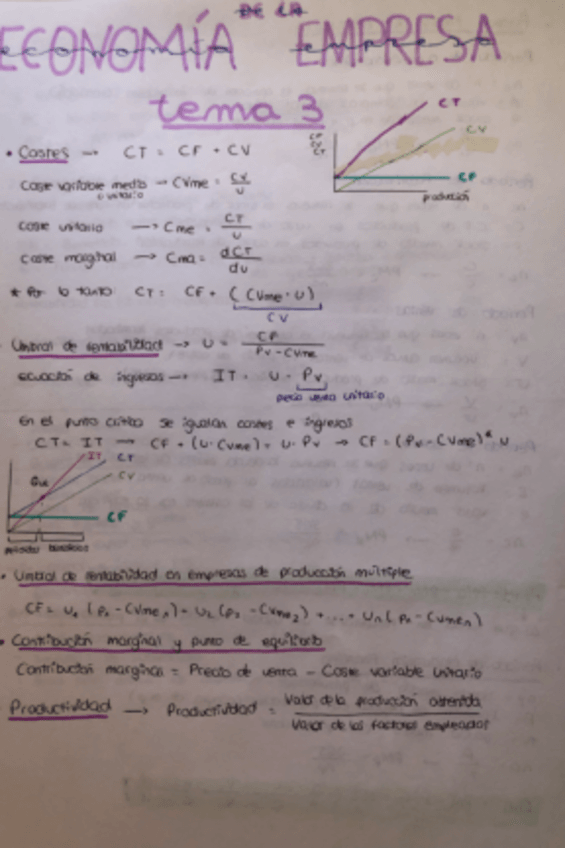 DE LA
ECONOMÍA EMPRESA
tema 3
• Costes → CT = CF + CV
Coste variable medio → CVme = CV/U
o unitario
coste unitario → Cme = CT/U
coste marginal → Cma = dCT/du
* Por lo tanto: CT = CF + (CVme · U)
CV
CF CV CT
CT
CV
CF
producción
Umbral de rentabilidad → U = CF/(Pv - CVme)
ecuación de ingresos → IT = U · Pv
precio venta unitario
En el punto crítico se igualan costes e ingresos
CT = IT → CF + (U · CVme) = U · Pv → CF = (Pv - CVme) * U
IT CT
CV
CF
pérdidas beneficios
• Umbral de rentabilidad en empresas de producción múltiple
CF = U₁ (P₁ - CVme₁) + U₂ (P₂ - CVme₂) + ... + Un (Pn - CVmen)
• Contribución marginal y punto de equilibrio
Contribución marginal = Precio de venta - Coste variable Unitario
Productividad → Productividad = Valor de la producción obtenida
Valor de los factores empleados